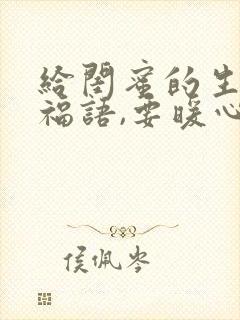 給閨蜜的生
福語,要暖心
侯佩岑